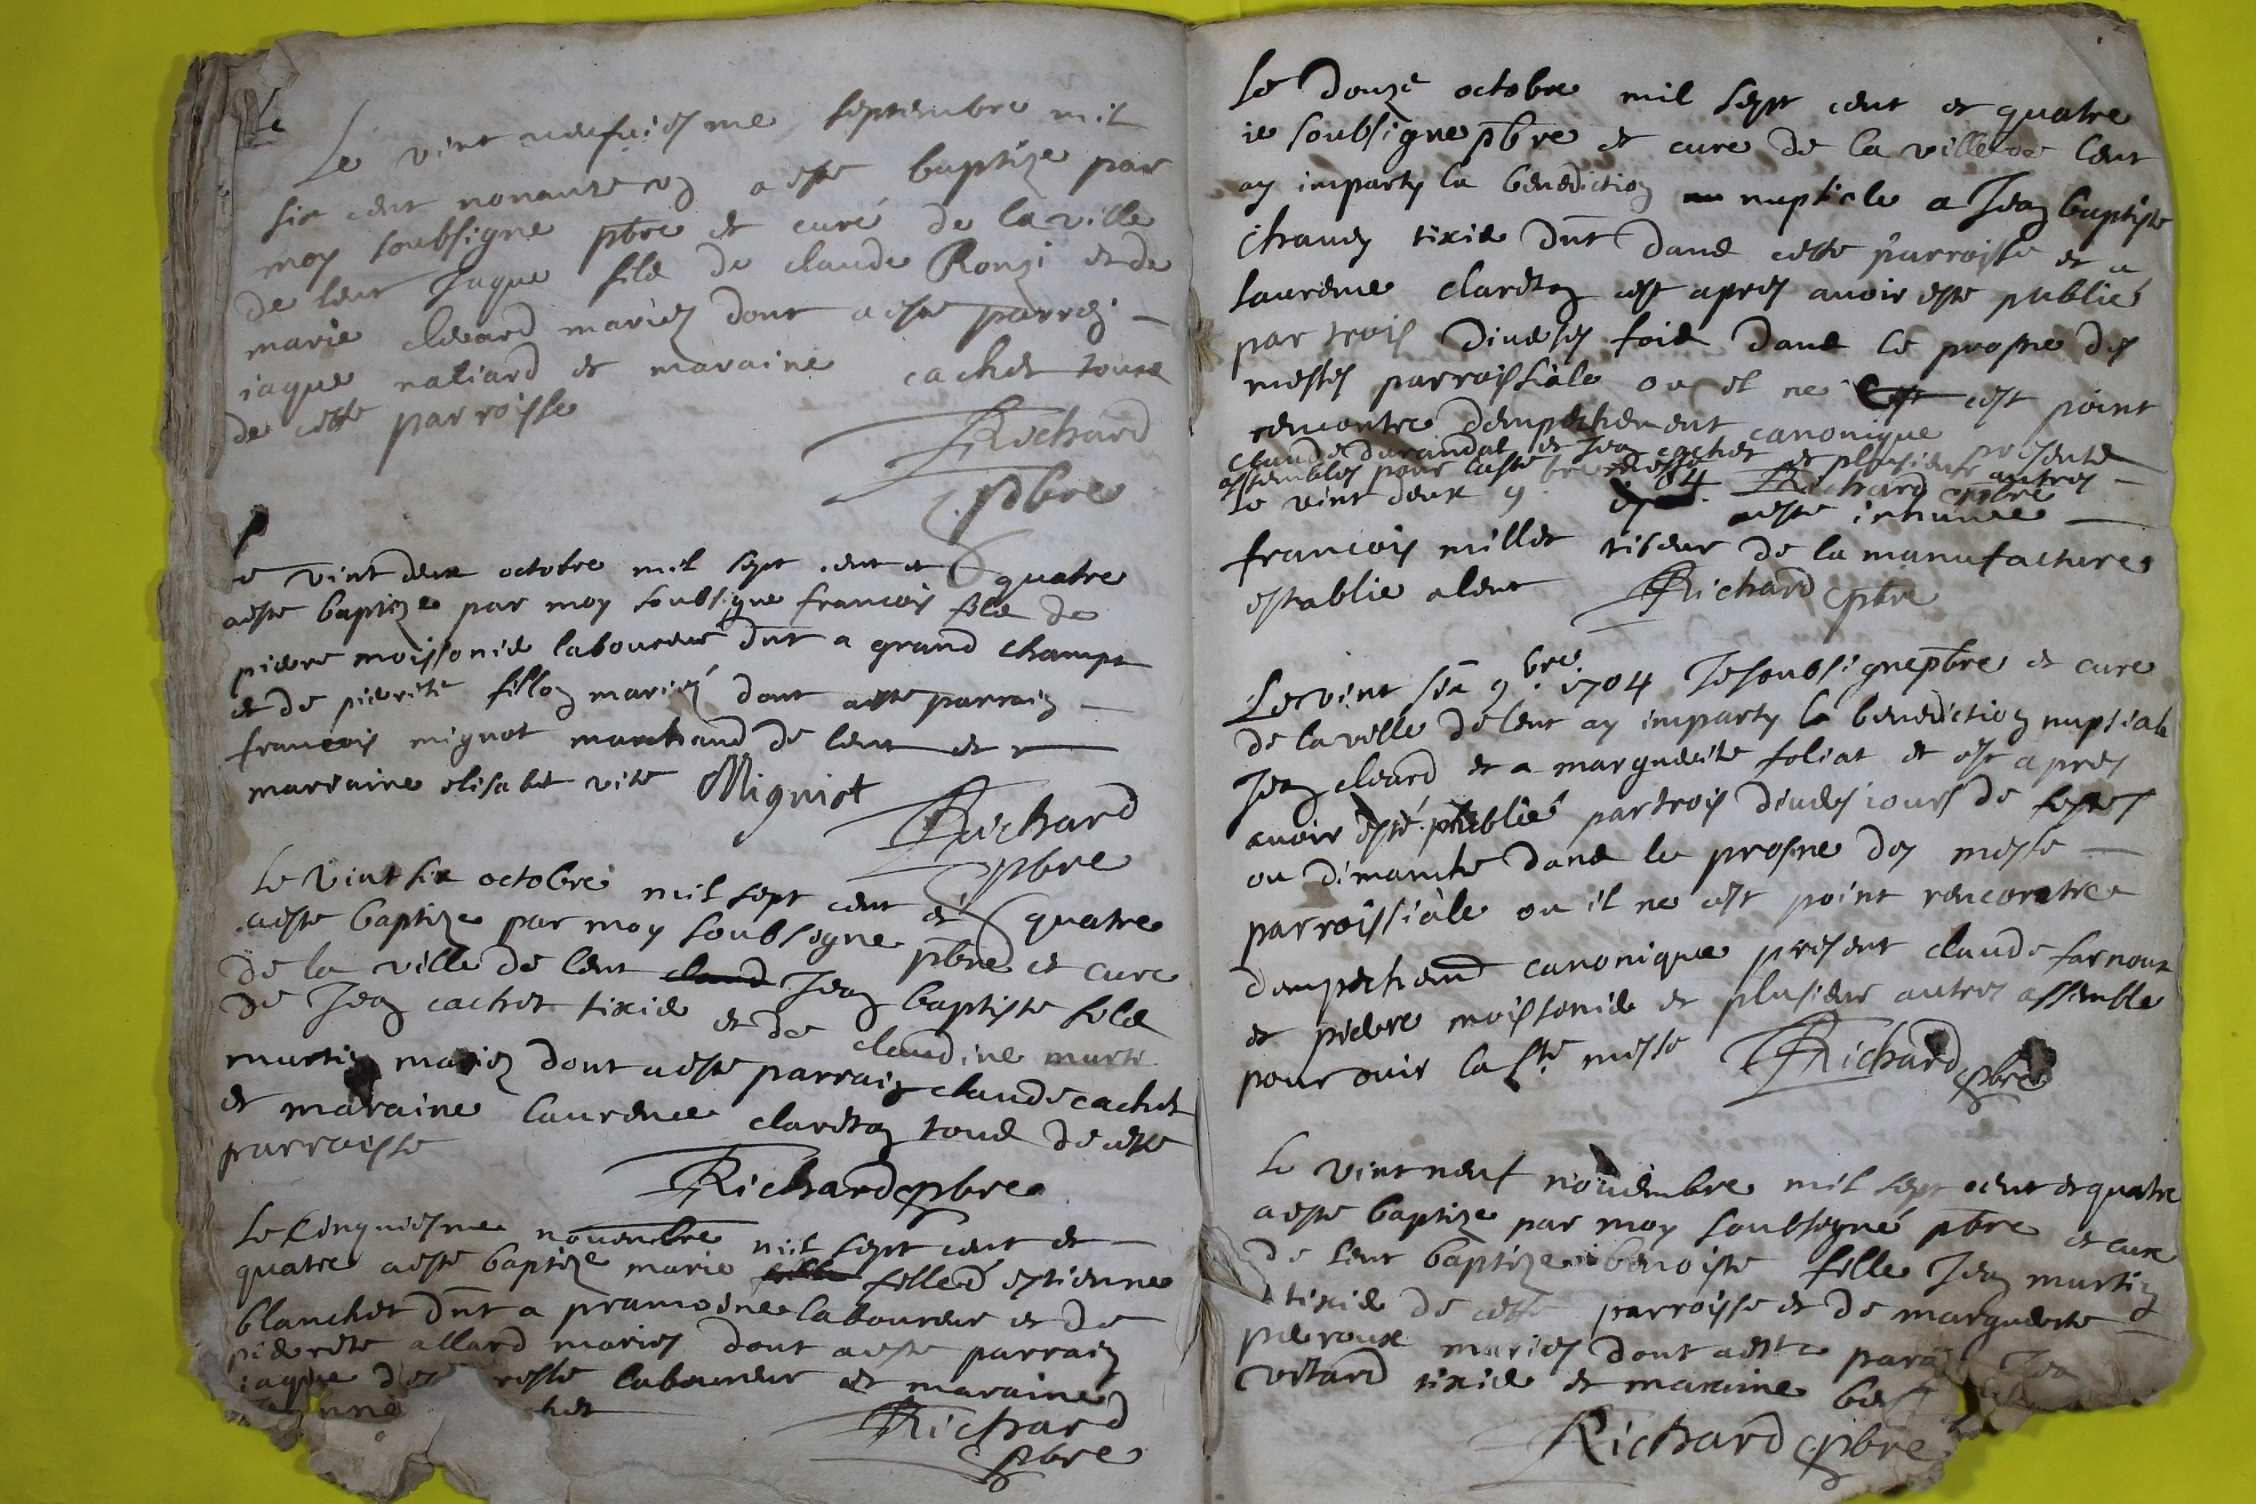 Le
Le vint neufiesme septembre mil
six cent nonante a este baptize par
moy soubsigne pbre et curé de la ville
de lent Jaque fils de claude Ronzi et de
marie cleard mariez dont a este parrei
iaque naliard et maraine cachet tous
de cette parroisse
Richard
pbre
Le vint deux octobre mil sept cent et quatre
a este baptize par moy soubsigne francois fils de
pierre moissonie laboureur dnt a grand champt
et de pierrete fillon mariez dont a este parrain
francois mignot marchand de lent et
marraine elisabet vite Migniot
Richard
pbre
Le vint six octobre mil sept cent et quatre
a este baptize par moy soubsigne pbre et cure
de la ville de lent claud Jean baptiste fils
de Jean cachet tixie et de claudine marti
martin mariez dont a este parrain claude cachet
et maraine laurence clareton tous de cette
parroisse
Richard pbre
Le Cinquiesme novembre mil sept cent et
quatre a este baptize marie fille fille d estienne
blanchet dnt a pramoine laboureur et de
pierrete allard mariez dont a este parrain
iaque reste laboureur et maraine
het
Richard
pbre
Le douze octobre mil sept cent et quatre
ie soubsigne pbre et cure de la ville de lent
ay imparty la benediction nuptiale a Jean baptiste
chanen tixie dnt dans cette parroisse et a
laurence clareton cest apres avoir este publié
par trois diverses fois dans le prosne des
messes parroissiale ou el ne cest point
rencontre dempechement canonique presente
claude durandat et Jean cachet et plusieur autres
assembles pour messe Richard pbre
le vint deux 9bre 1704 a este inhume
francois millet tiseur de la manufacture
establie a lent Richard pbre
Le vint six 9bre 1704 Je soubsigne pbre et cure
de la ville de lent ay imparty la benediction nuptiale
Jean cleard et a marguerite foliat et cest apres
avoir esté publié par trois divers iours de festes
ou dimanche dans le prosne des messe
parroissiale ou il ne cest point rencontre
dempechemd canonique present claude farnoux
et pierre moissonie et plusieur autres assemble
pour ouir la ste messe Richard pbre
Le vint neuf novembre mil sept cent et quatre
a este baptize par moy soubsigné pbre et cure
de lent baptize benoiste fille Jean martin
tixie de cette parroisse et de marguerite
peroux mariez dont a este para Jea
vitard tixie et maraine
Richard pbre